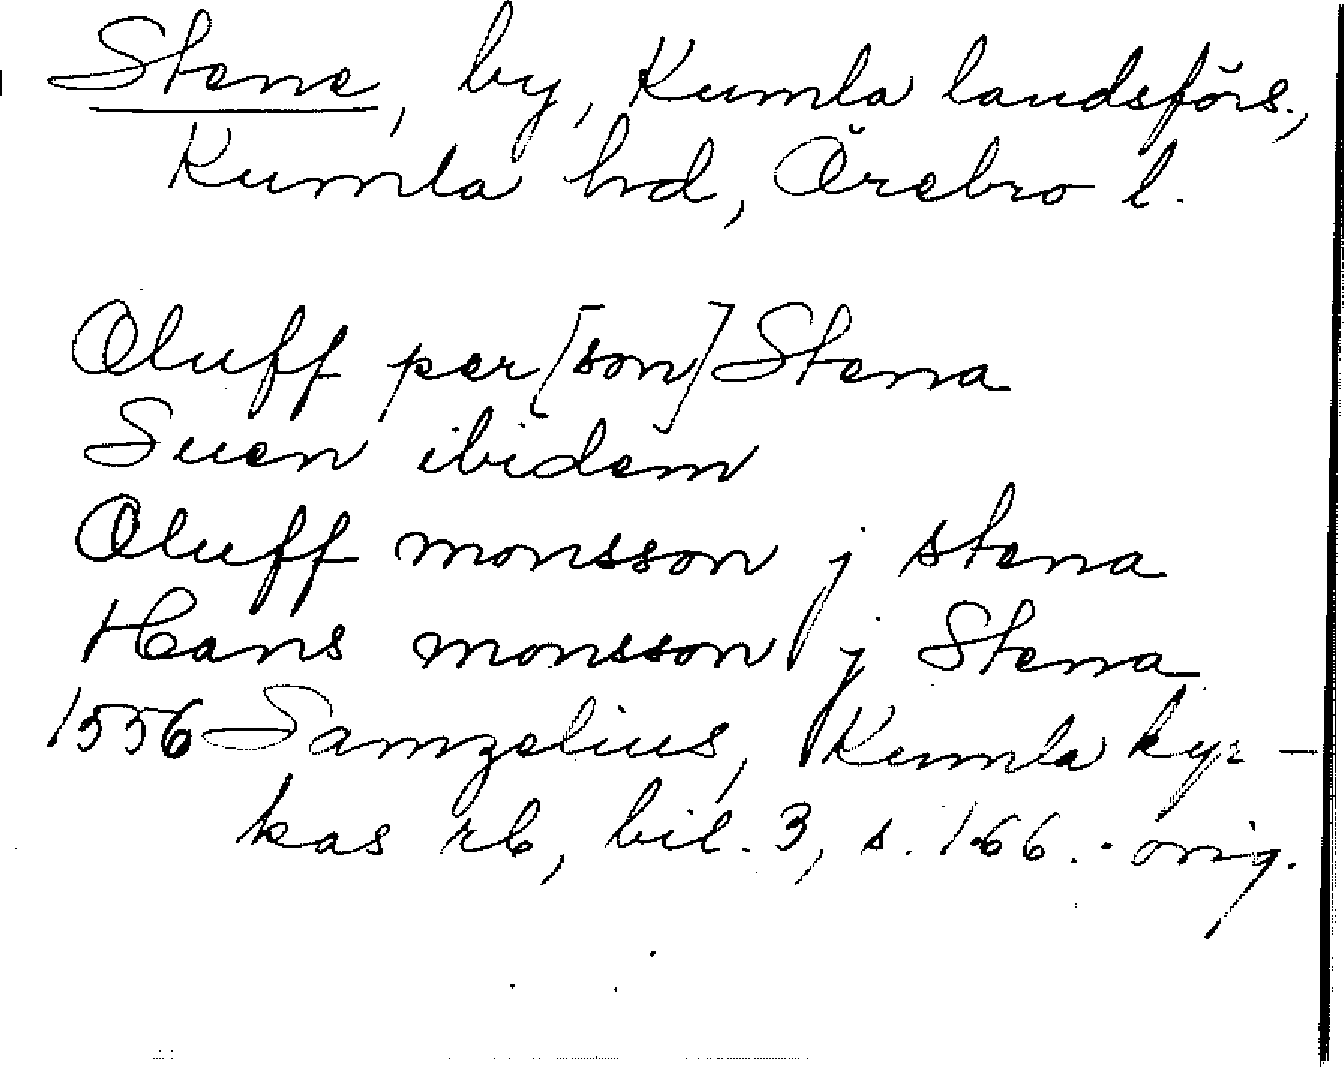 Stene, by, Kumla landsförs.,
Kumla hd, Örebro l.
Oluff per [son] Stena
Suen ibidem
Oluff monsson j stena
Hans monsson j Stena
1556 Samzelius, Kumla kyr-
kas rb, bil. 3, s. 166. orig.